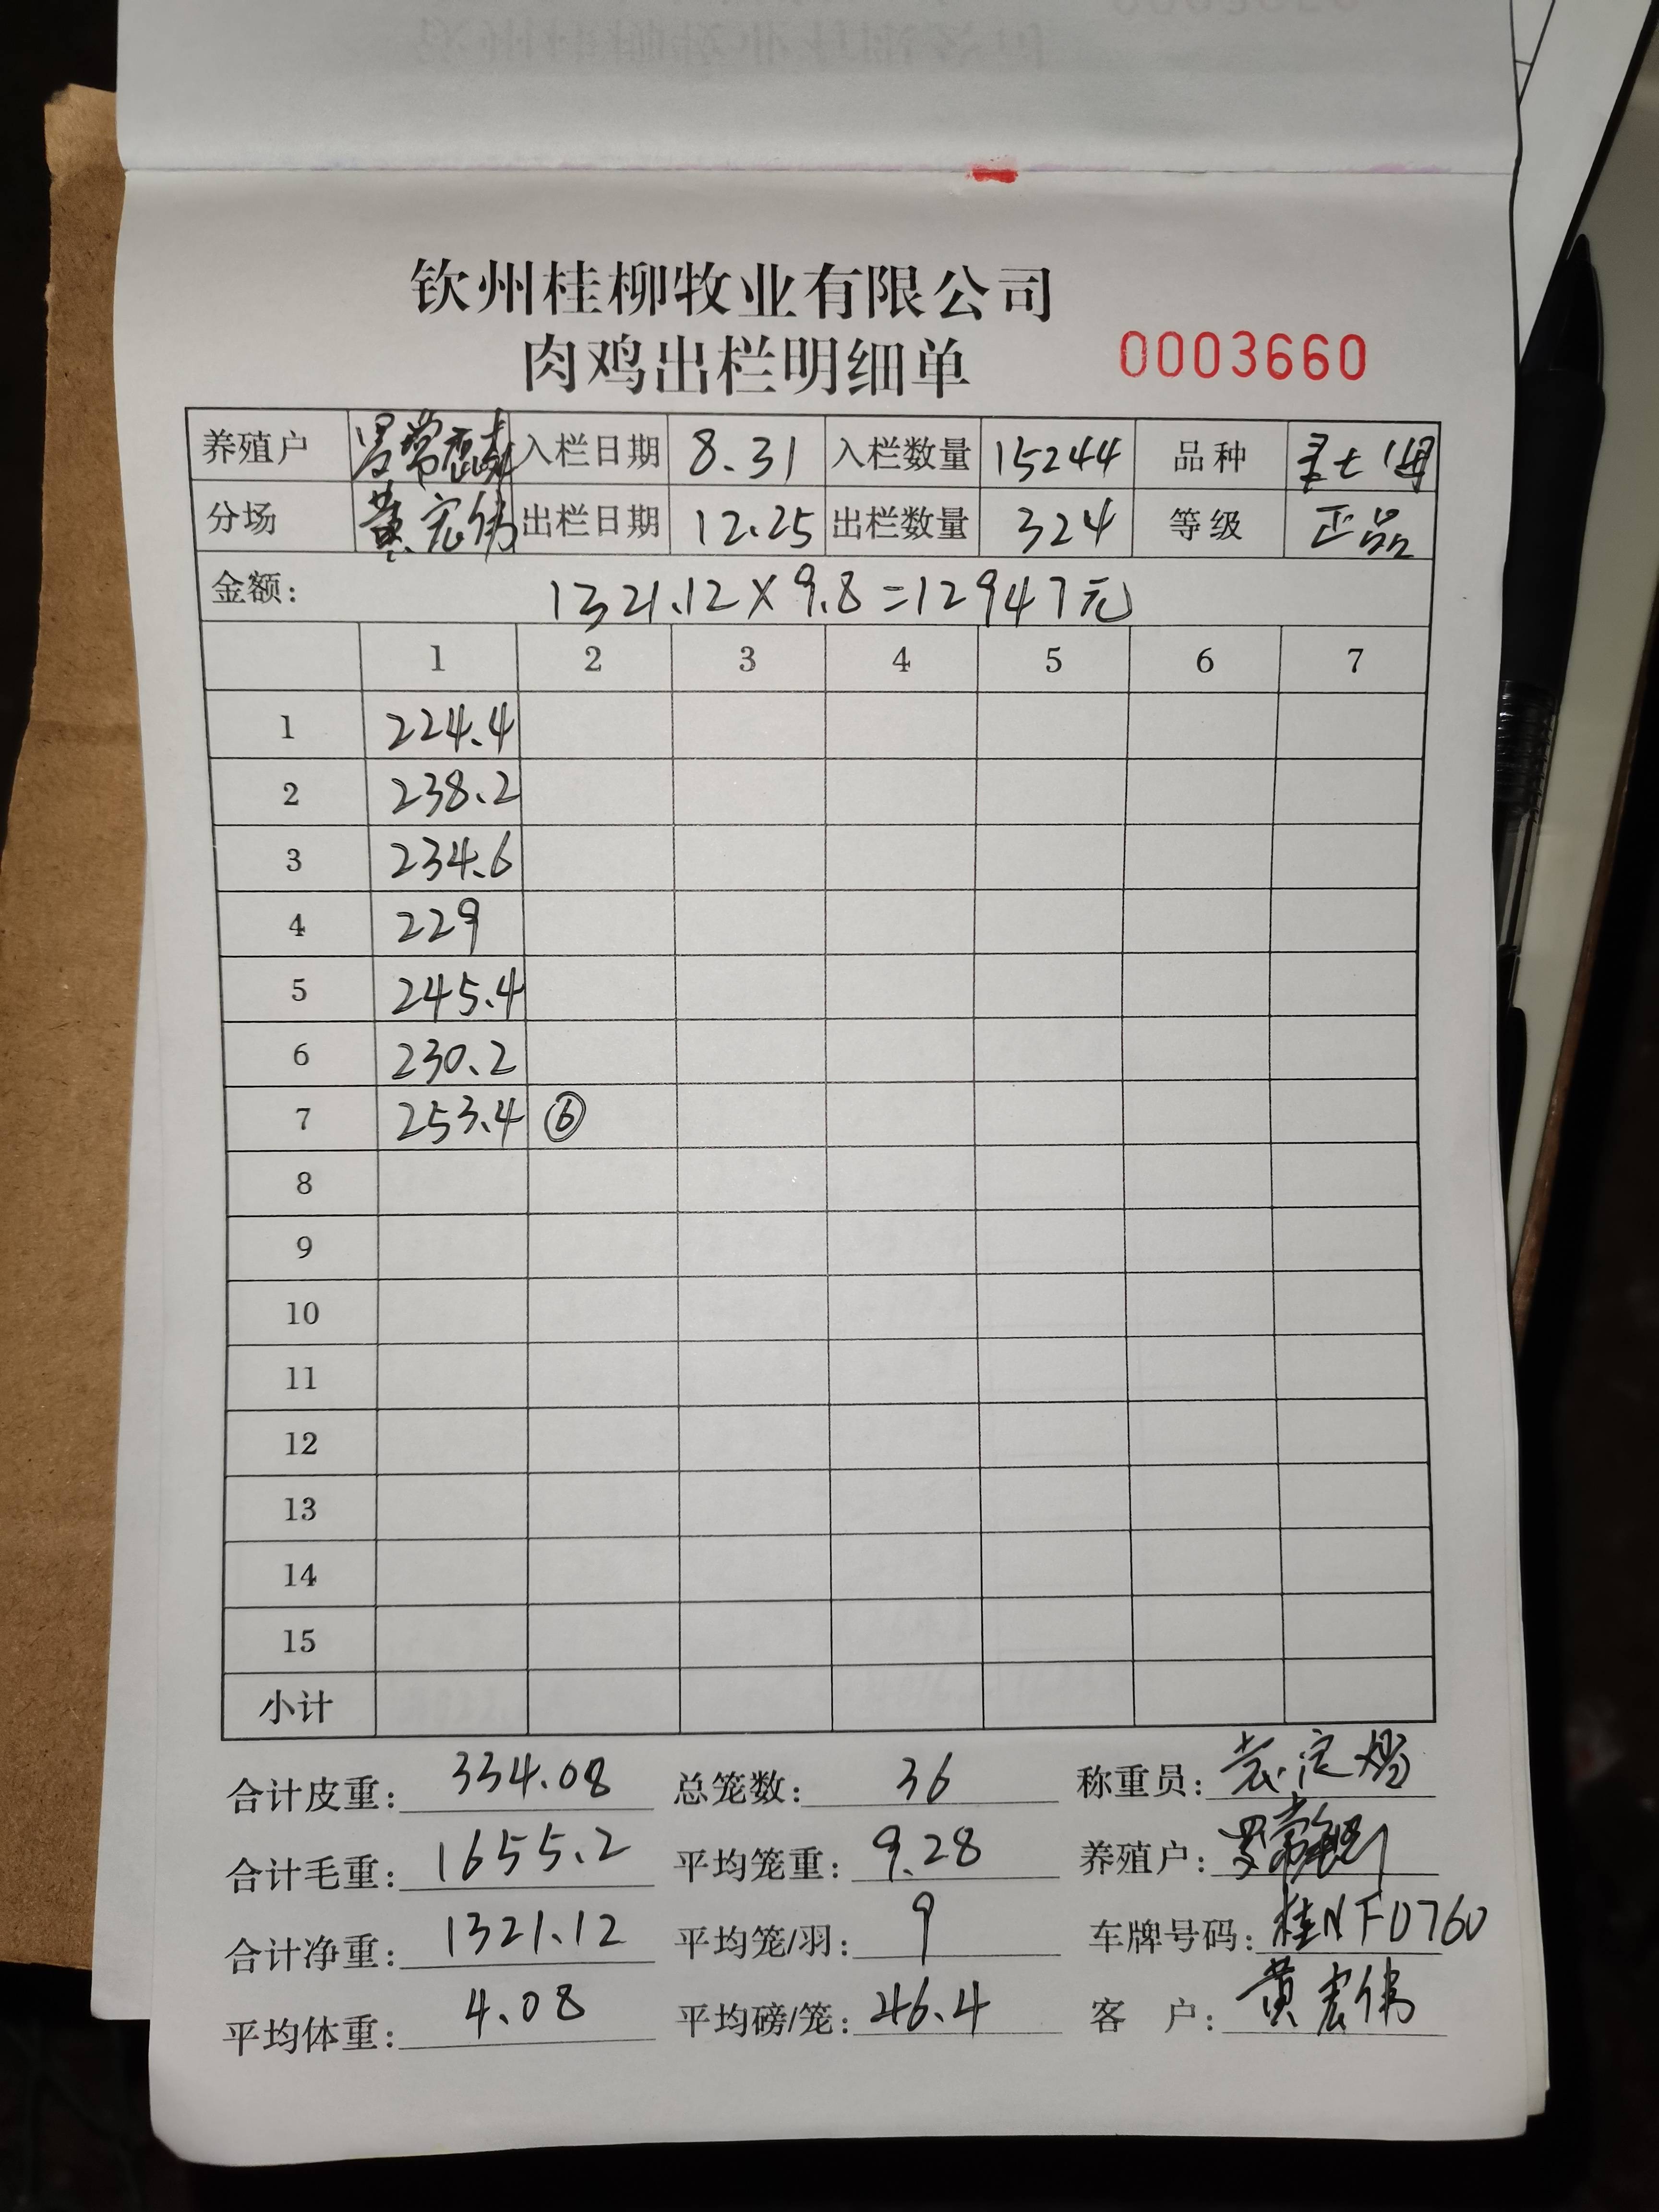 钦州桂柳牧业有限公司
肉鸡出栏明细单 0003660
养殖户 入栏日期 8.31 入栏数量 15244 品种
分场 黄宏伟 出栏日期 12.25 出栏数量 324 等级 正品
金额: 1321.12×9.8=12947元
1 2 3 4 5 6 7
1 224.4
2 238.2
3 234.6
4 229
5 245.4
6 230.2
7 253.4 ⑥
8
9
10
11
12
13
14
15
小计
合计皮重: 334.08 总笼数: 36 称重员:
合计毛重: 1655.2 平均笼重: 9.28 养殖户:
合计净重: 1321.12 平均笼/羽: 9 车牌号码: 桂NFD760
平均体重: 4.08 平均磅/笼: 46.4 客 户: 黄宏伟